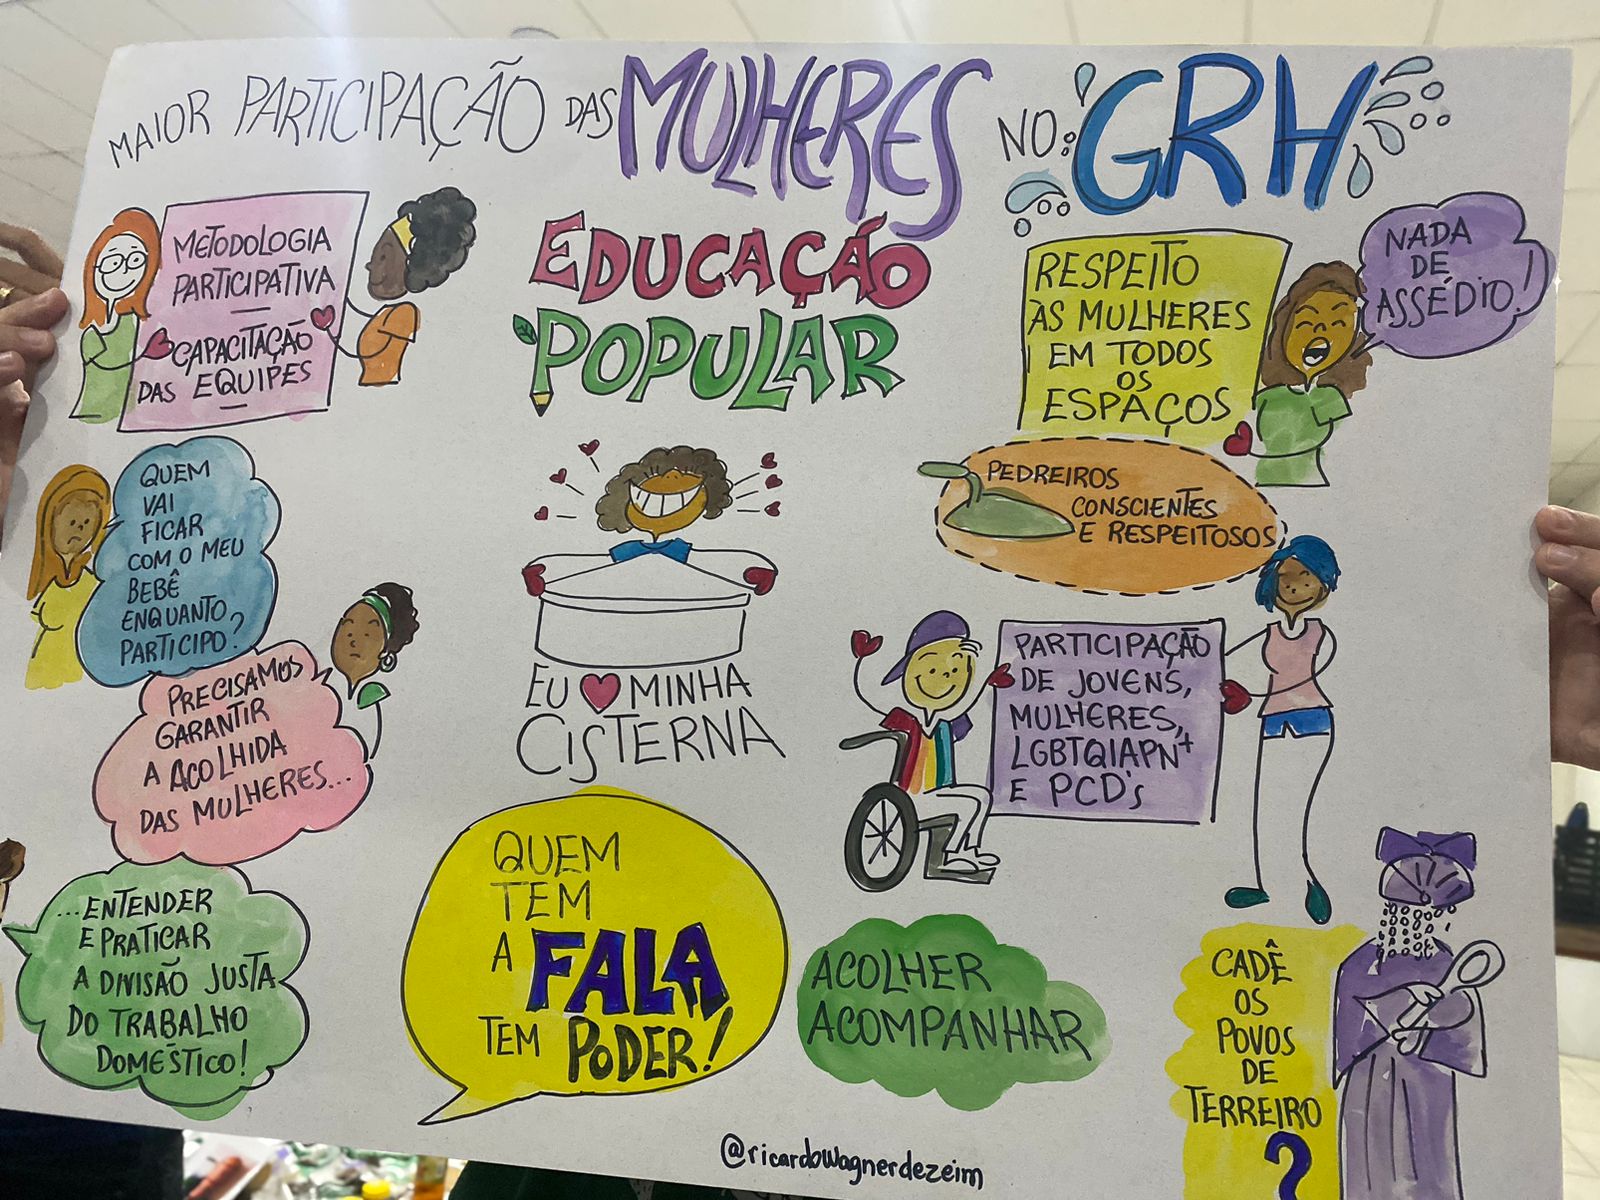 MAIOR PARTICIPAÇÃO DAS MULHERES NO GRH
METODOLOGIA
PARTICIPATIVA
CAPACITAÇÃO
DAS EQUIPES
EDUCAÇÃO
POPULAR
RESPEITO
ÀS MULHERES
EM TODOS
OS
ESPAÇOS
NADA
DE
ASSÉDIO!
PEDREIROS
CONSCIENTES
E RESPEITOSOS
QUEM
VAI
FICAR
COM O MEU
BEBÊ
ENQUANTO
PARTICIPO?
PRECISAMOS
GARANTIR
A ACOLHIDA
DAS MULHERES...
...ENTENDER
E PRATICAR
A DIVISÃO JUSTA
DO TRABALHO
DOMÉSTICO!
EU ♥ MINHA
CISTERNA
PARTICIPAÇÃO
DE JOVENS,
MULHERES,
LGBTQIAPN+
E PCD's
QUEM
TEM
A FALA
TEM PODER!
ACOLHER
ACOMPANHAR
CADÊ
OS
POVOS
DE
TERREIRO
?
@ricardowagnerdezeim